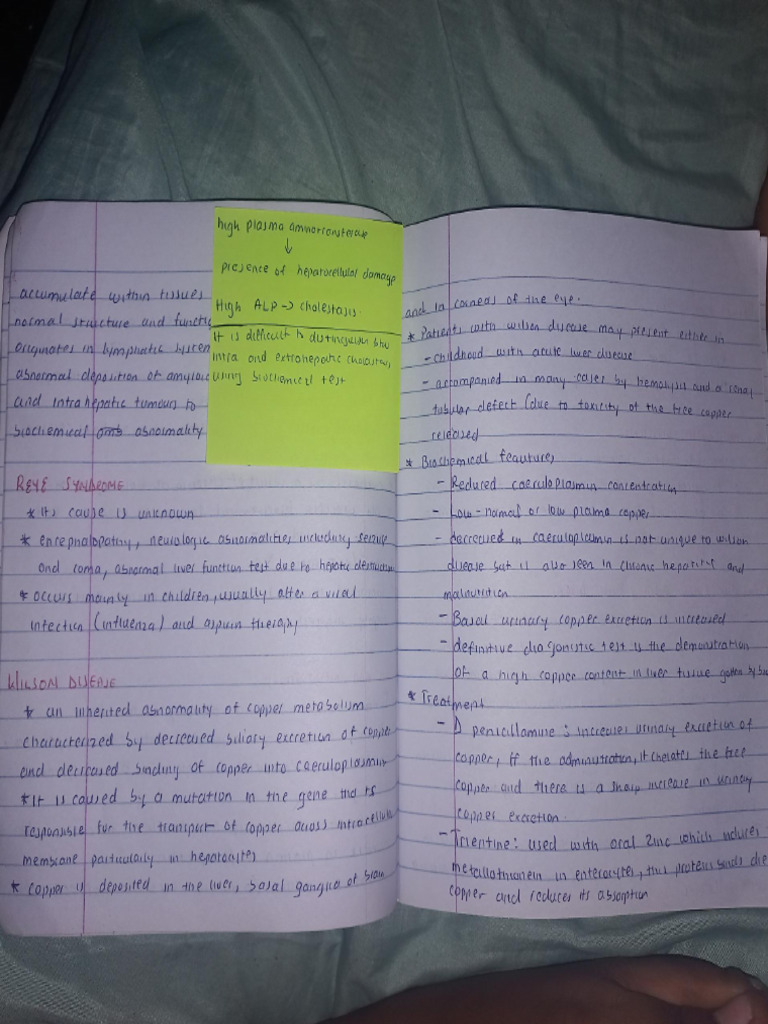 accumulate within tissues
normal structure and functi
originates in lymphatic system
abnormal deposition of amyloid
and intrahepatic tumours to
biochemical abnormality
high plasma aminotransferase
↓
presence of hepatocellular damage
High ALP → cholestasis.
It is difficult to distinguish btw
intra and extrahepatic cholestasis
using biochemical test
REYE SYNDROME
* Its cause is unknown
* encephalopathy, neurologic abnormalities including seizure
and coma, abnormal liver function test due to hepatic destruction
* occurs mainly in children, usually after a viral
infection (influenza) and aspirin therapy
WILSON DISEASE
* an inherited abnormality of copper metabolism
characterized by decreased biliary excretion of copper
and decreased binding of copper into caeruloplasmin
* It is caused by a mutation in the gene that is
responsible for the transport of copper across intracellular
membrane particularly in hepatocytes
* copper is deposited in the liver, basal ganglia of brain
and in corneas of the eye.
* Patients with wilson disease may present either in
- childhood with acute liver disease
- accompanied in many cases by hemolysis and a renal
tubular defect (due to toxicity of the free copper
released
* Biochemical features
- Reduced caeruloplasmin concentration
- Low-normal or low plasma copper
- decreased in caeruloplasmin is not unique to wilson
disease but is also seen in chronic hepatitis and
malnutrition
- Basal urinary copper excretion is increased
- definitive diagonistic test is the demonstration
of a high copper content in liver tissue gotten by
* Treatment
- D penicillamine : increases urinary excretion of
copper, ff the administration, it chelates the free
copper and there is a sharp increase in urinary
copper excretion.
- Trientine : used with oral zinc which induces
metallothionein in enterocytes, this proteins binds
copper and reduces its absorption